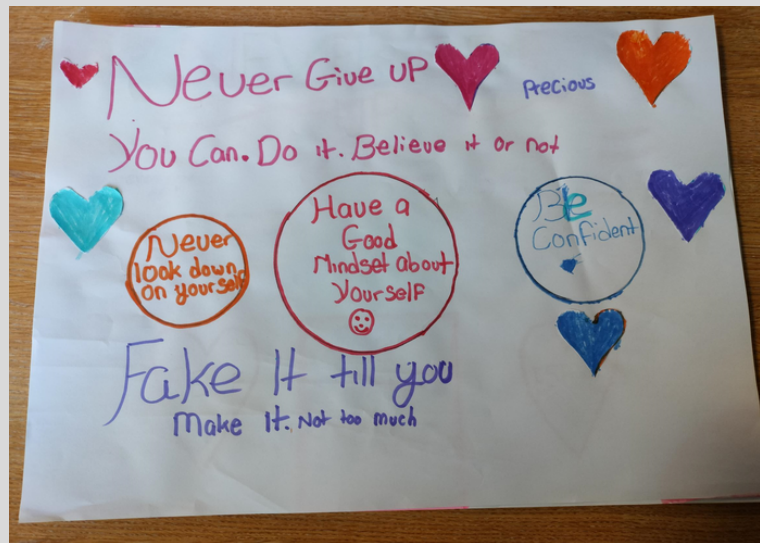 Never Give up
Precious
You Can. Do it. Believe it or not
Never
look down
on yourself
Have a
Good
Mindset about
Yourself
Be
Confident
Fake It till you
Make It. Not too much